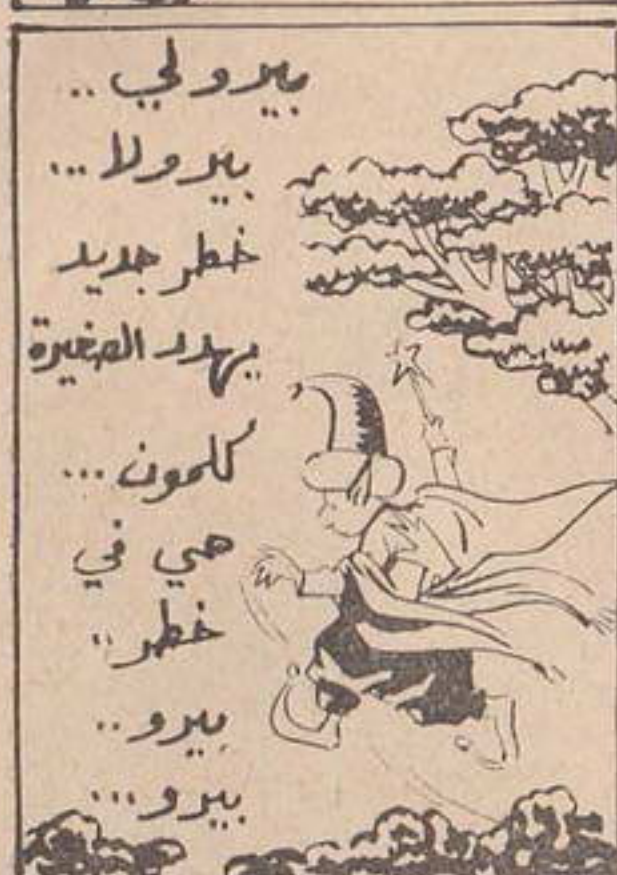 بيرولي ..
بيرولا ...
خطر جديد
يهدد الصغيرة
كلمون ...
هي في
خطر ..
بيرو ..
بيرو ...